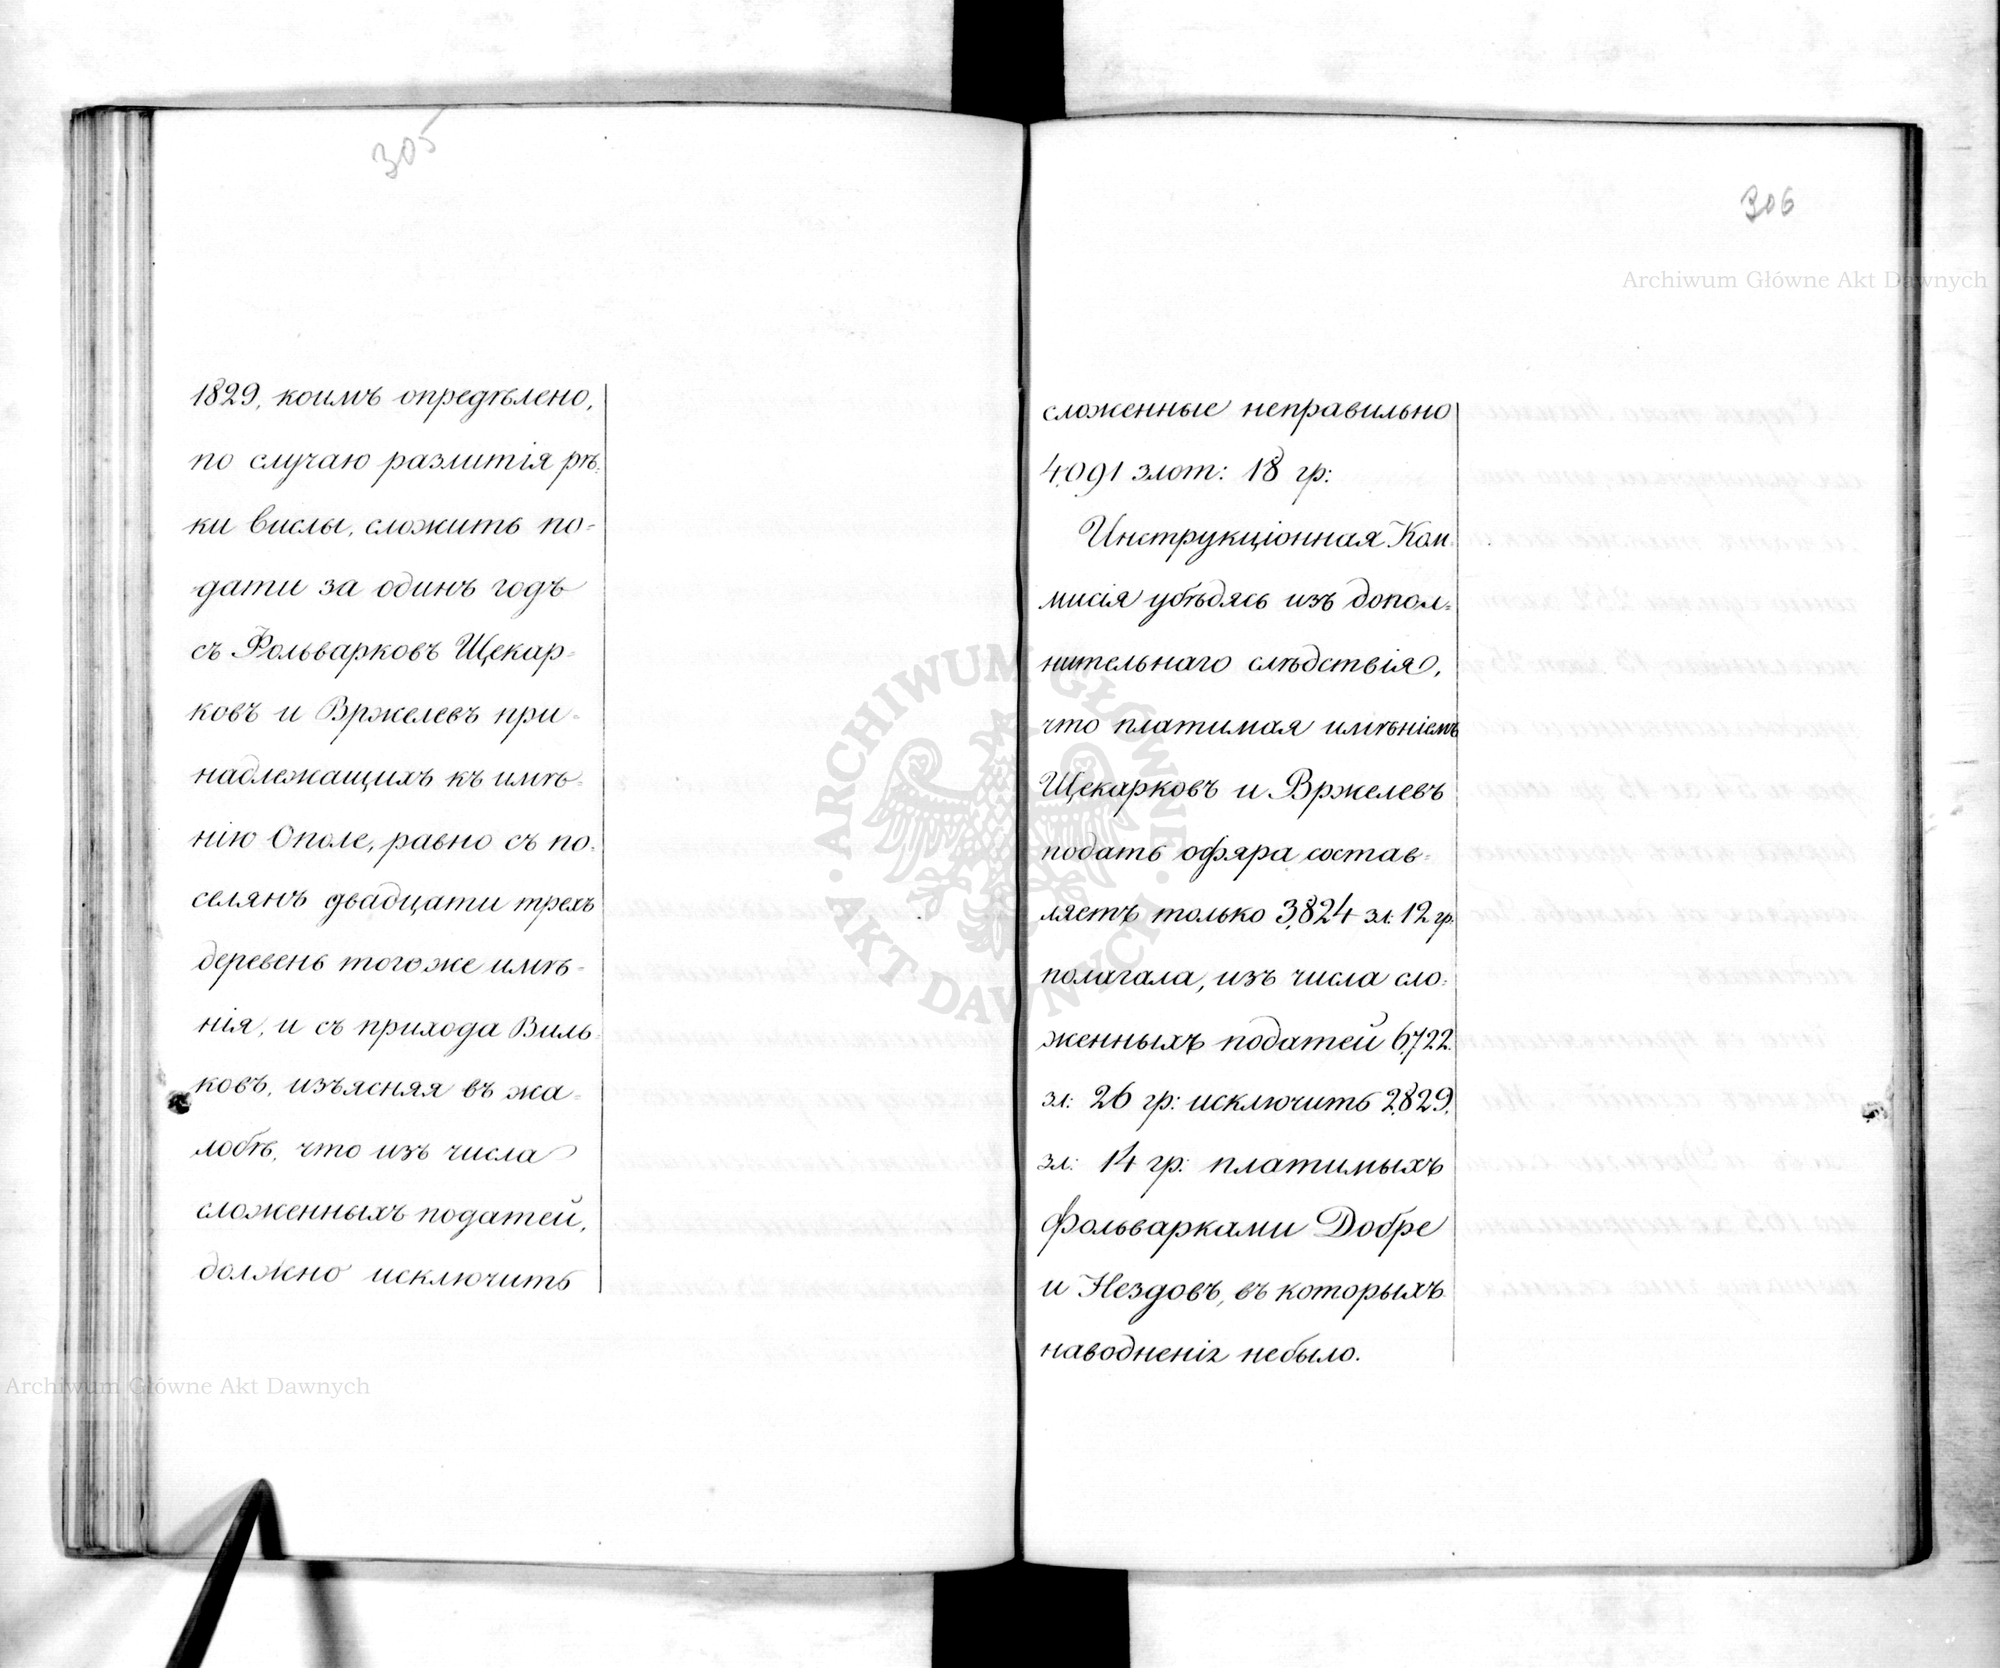 305
1829, коимъ опредѣлено,
по случаю разлитія рѣ-
ки Вислы, сложить по-
дати за одинъ годъ
съ Фольварковъ Щекар-
ковъ и Вржелевъ при-
надлежащихъ къ имѣ-
нію Ополе, равно съ по-
селянъ двадцати трехъ
деревень тогоже имѣ-
нія, и съ прихода Виль-
ковъ, изъясняя въ жа-
лобѣ, что изъ числа
сложенныхъ податей,
должно исключить
306
Archiwum Główne Akt Dawnych
сложенные неправильно
4,091 злот: 18 гр:
Инструкціонная Ком-
мисія убѣдясь изъ допол-
нительнаго слѣдствія,
что платимая имѣніемъ
Щекарковъ и Вржелевъ
подать офяра состав-
ляетъ только 3,824 зл: 12 гр.
полагала, изъ числа сло-
женныхъ податей 6,722.
зл: 26 гр: исключить 2,829.
зл: 14 гр: платимыхъ
Фольварками Добре
и Нездовъ, въ которыхъ
наводненія небыло.
ARCHIWUM GŁÓWNE · AKT DAWNYCH ·
Archiwum Główne Akt Dawnych